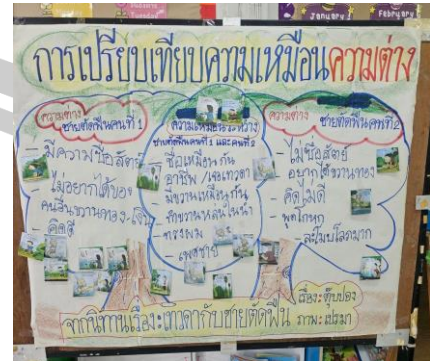 January
February
การเปรียบเทียบความเหมือนความต่าง
ความต่าง
ชายตัดฟืนคนที่ 1
- มีความซื่อสัตย์
- ไม่อยากได้ของ
คนอื่นขวานทอง-เงิน
- คิดดี
ความเหมือนระหว่าง
ชายตัดฟืนคนที่ 1 และคนที่ 2
- ชื่อเหมือนกัน
- อาชีพ /เจอเทวดา
- มีขวานเหมือนกัน
- ทำขวานหล่นในน้ำ
- ทรงผม
- เพศชาย
ความต่าง
ชายตัดฟืนคนที่ 2
- ไม่ซื่อสัตย์
อยากได้ขวานทอง
- คิดไม่ดี
- พูดโกหก
- ละโมบโลภมาก
จากนิทานเรื่อง:เทวดากับชายตัดฟืน
เรื่อง:ตุ๊บปอง
ภาพ:เปรมา